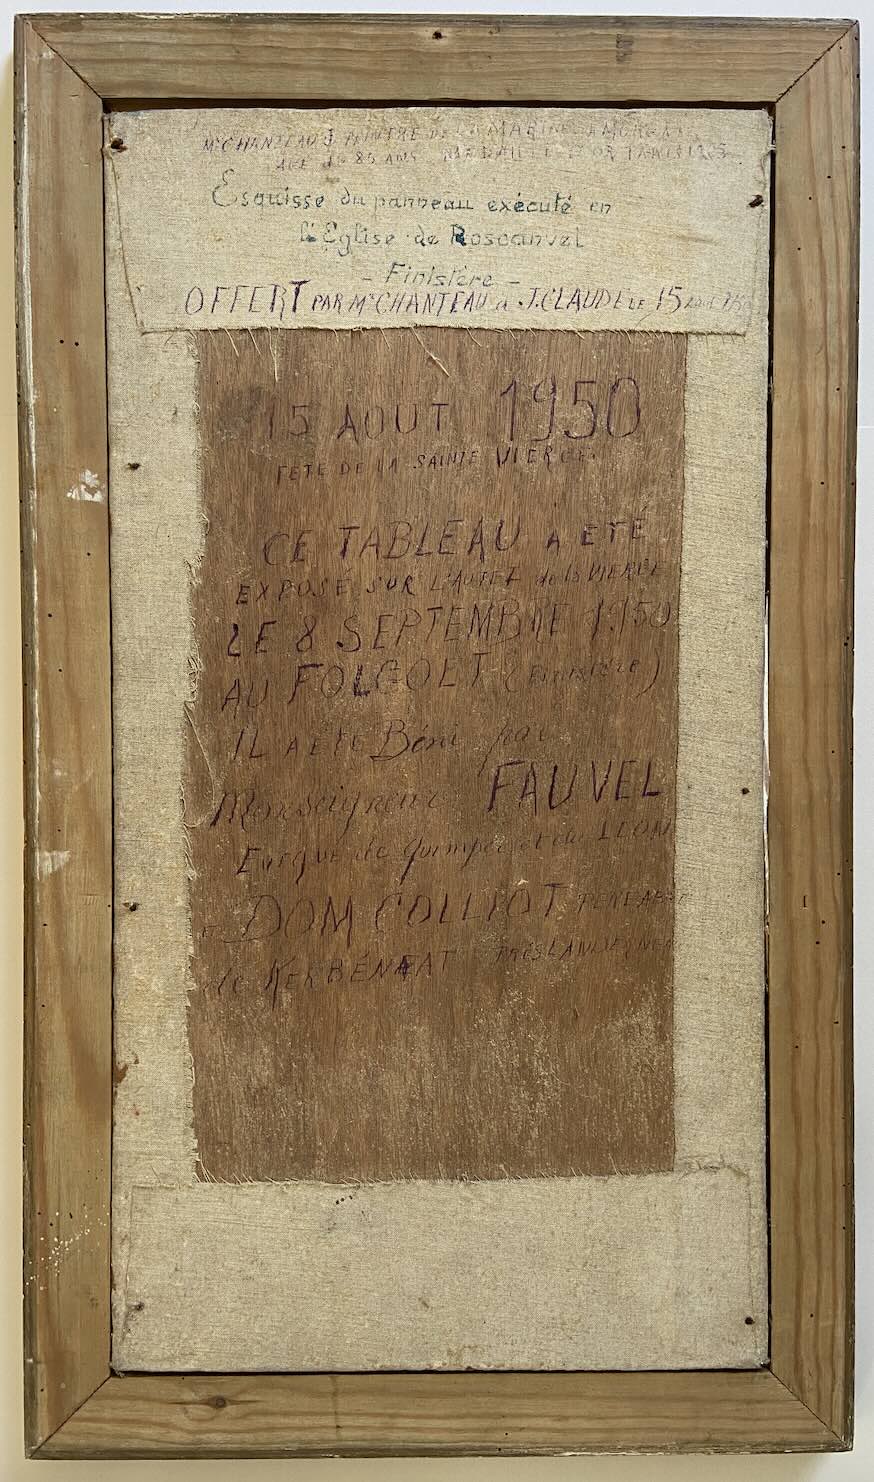 Mr CHANTEAU J PEINTRE DE LA MARINE A MORGAT
AGE de 85 ANS MEDAILLE D'OR PARIS
Esquisse du panneau exécuté en
l'Eglise de Roscanvel
- Finistère -
OFFERT PAR Mr CHANTEAU à J. CLAUDE LE 15 Aout 1950
15 AOUT 1950
FÊTE DE LA SAINTE VIERGE
CE TABLEAU A ETÉ
EXPOSÉ SUR L'AUTEL de la VIERGE
LE 8 SEPTEMBRE 1950
AU FOLGOET (Finistère)
IL A ETÉ Béni par
Monseigneur FAUVEL
Evêque de Quimper et du LEON
et DOM COLLIOT PERE ABBÉ
de KERBÉNÉAT PRÈS LANDERNEAU